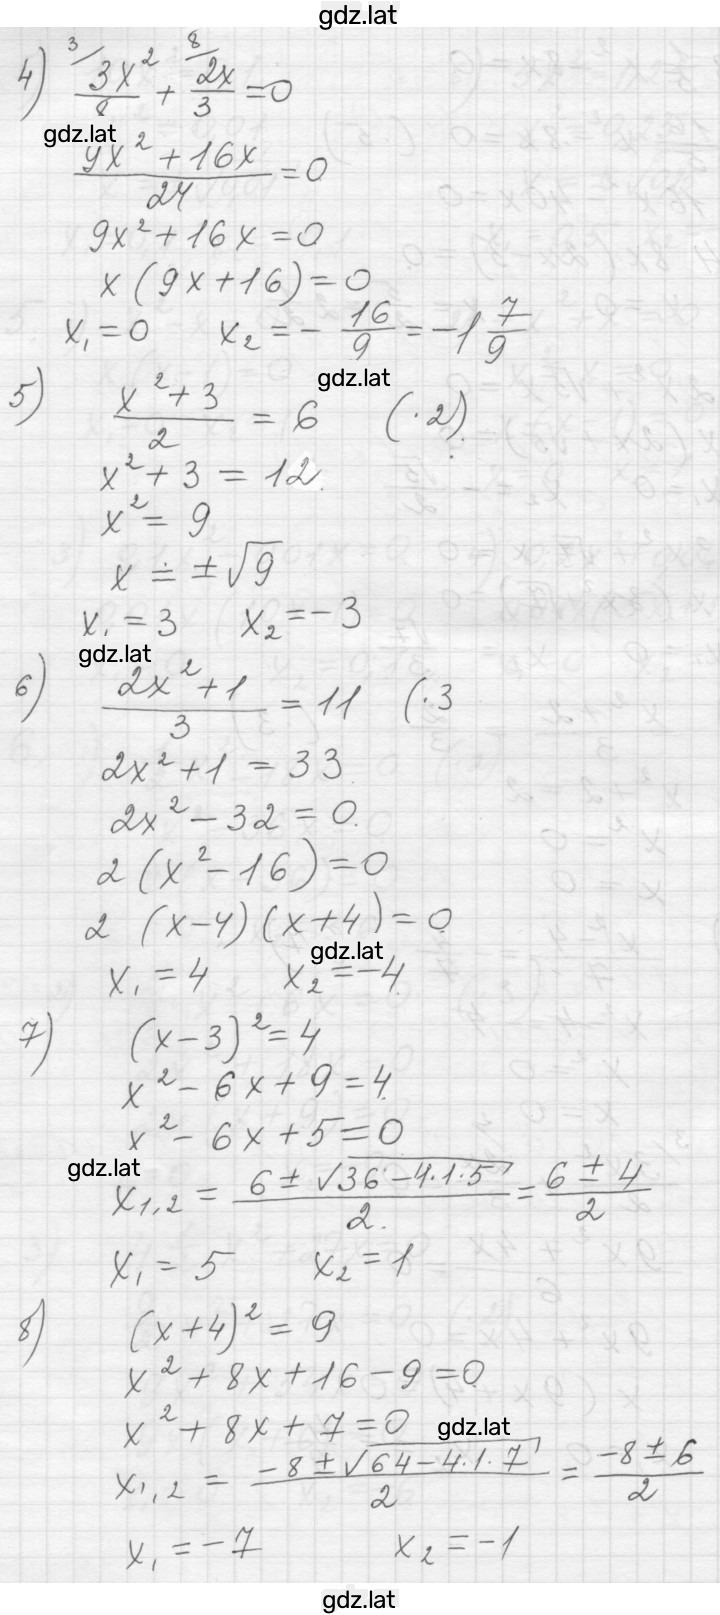 gdz.lat
4) 3x²/8 (3 + 2x/3 (8 = 0
gdz.lat
(9x² + 16x)/24 = 0
9x² + 16x = 0
x (9x + 16) = 0
x₁ = 0 x₂ = - 16/9 = -1 7/9
gdz.lat
5) (x² + 3)/2 = 6 (·2)
x² + 3 = 12
x² = 9
x = ±√9
x₁ = 3 x₂ = -3
gdz.lat
6) (2x² + 1)/3 = 11 (·3
2x² + 1 = 33
2x² - 32 = 0
2 (x² - 16) = 0
2 (x-4) (x+4) = 0
gdz.lat
x₁ = 4 x₂ = -4
7) (x-3)² = 4
x² - 6x + 9 = 4
x² - 6x + 5 = 0
gdz.lat
x₁,₂ = (6 ± √(36 - 4·1·5))/2 = (6 ± 4)/2
x₁ = 5 x₂ = 1
8) (x+4)² = 9
x² + 8x + 16 - 9 = 0
x² + 8x + 7 = 0
gdz.lat
x₁,₂ = (-8 ± √(64 - 4·1·7))/2 = (-8 ± 6)/2
x₁ = -7 x₂ = -1
gdz.lat